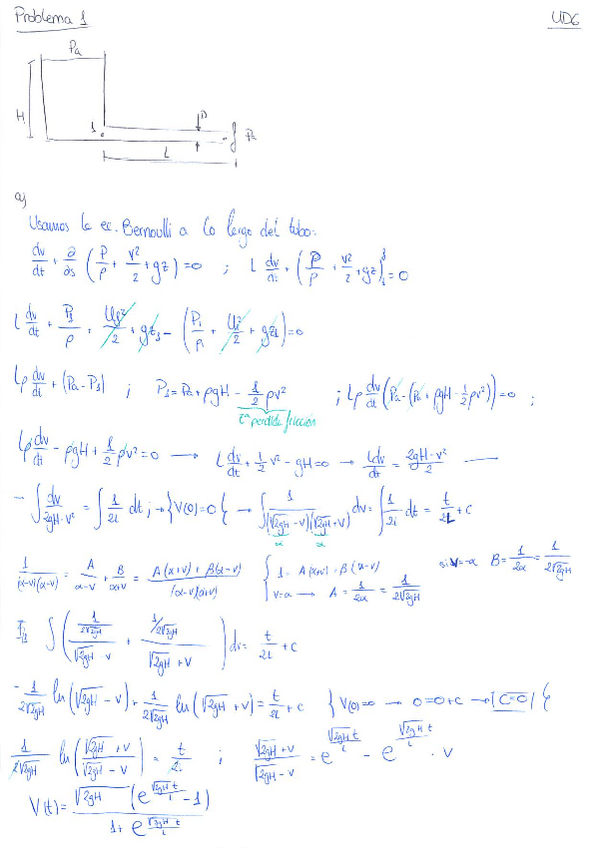 Problema 1 UD6
Pa
H
1
D
3
Pa
L
a)
Usamos la ec. Bernoulli a lo largo del tubo:
dv/dt + ∂/∂s (P/ρ + v²/2 + gz) = 0 ; L dv/dt + (P/ρ + v²/2 + gz)₁³ = 0
L dv/dt + P₃/ρ + U₃²/2 + gz₃ - (P₁/ρ + U₁²/2 + gz₁) = 0
Lρ dv/dt + (Pa - P₁) ; P₁ = Pa + ρgH - 1/2 ρv² ; Lρ dv/dt (Pa - (Pa + ρgH - 1/2 ρv²)) = 0 ;
perdida fricción
Lρ dv/dt - ρgH + 1/2 ρv² = 0 → L dv/dt + 1/2 v² - gH = 0 → L dv/dt = (2gH - v²)/2 —
- ∫ dv/(2gH - v²) = ∫ 1/2L dt ; → {V(0)=0{ → ∫ 1/((√2gH - v)(√2gH + v)) dv = ∫ 1/2L dt = t/2L + C
α α
1/((α-v)(α+v)) = A/(α-v) + B/(α+v) = (A(α+v) + B(α-v))/((α-v)(α+v)) { 1 = A(α+v) + B(α-v) si v=-α B = 1/2α = 1/(2√2gH)
v=α → A = 1/2α = 1/(2√2gH)
∫ ( (1/(2√2gH))/(√2gH - v) + (1/2√2gH)/(√2gH + v) ) dv = t/2L + C
- 1/(2√2gH) ln(√2gH - v) + 1/(2√2gH) ln(√2gH + v) = t/2L + C {V(0)=0 → 0=0+C → C=0{
1/(2√2gH) ln((√2gH + v)/(√2gH - v)) = t/2L ; (√2gH + v)/(√2gH - v) = e^(√2gH t/L) - e^(√2gH t/L) · v
V(t) = √2gH (e^(√2gH t/L) - 1)/(1 + e^(√2gH t/L))